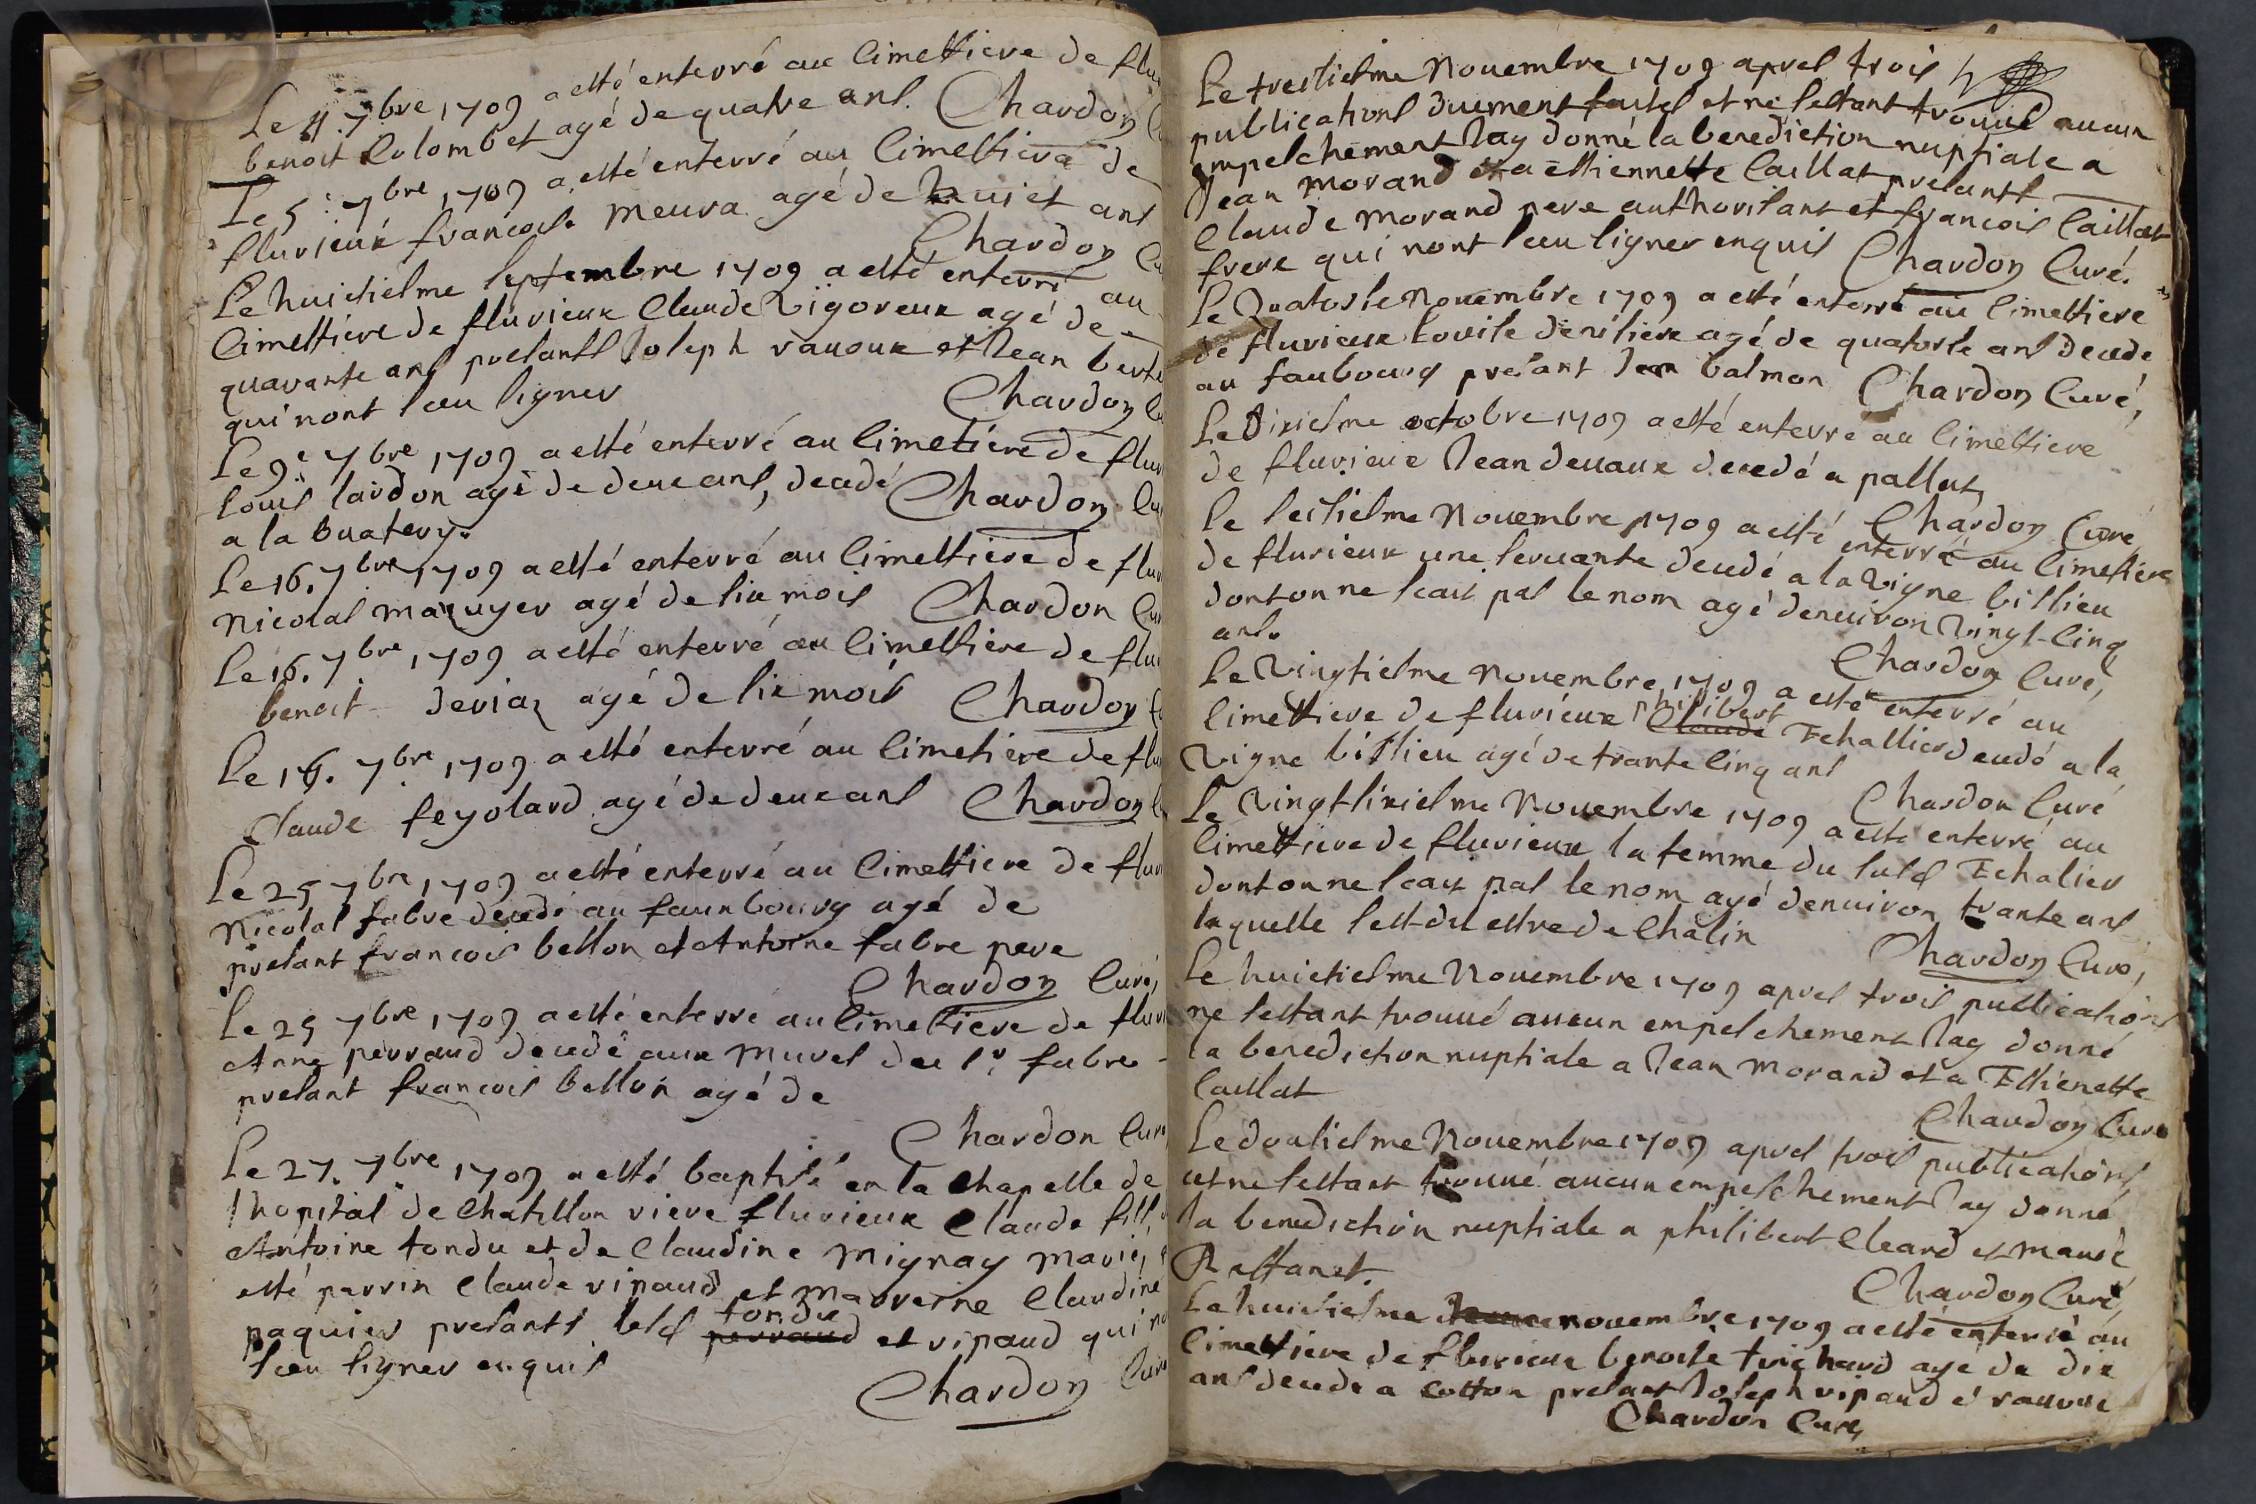 Le 4 7bre 1709 a esté enterré au Cimettiere de flu
benoit Colombet agé de quatre ans. Chardon
Le 5e 7bre 1709 a esté enterré au Cimettiere de
fluvieux francois meura agé de huict ans
Chardon Cu
Le huictiesme septembre 1709 a esté enterré au
Cimettiere de fluvieux Claude Vigoreux agé de
quarante ans presants Joseph vauoux et Jean berte
qui nont sceu signer Chardon Cu
Le 9e 7bre 1709 a esté enterré au Cimetiere de fluv
Louis lardon agé de deux ans, decedé Chardon Cu
a la buatery.
Le 16. 7bre 1709 a esté enterré au Cimettiere de fluv
Nicolas mazuyer agé de six mois Chardon Cu
Le 16. 7bre 1709 a esté enterré au Cimettiere de fluv
benoit deviaz agé de six mois Chardon
Le 16. 7bre 1709 a esté enterré au Cimetiere de flu
Claude feyolard agé de deux ans Chardon
Le 25 7bre 1709 a esté enterré au Cimettiere de fluv
Nicolas fabre decedé au faunbourg agé de
presant francois bellon et Antoine fabre pere
Chardon Curé,
Le 25 7bre 1709 a esté enterré au Cimettiere de fluv
Anne perraud decedé aux mures du sr. fabre
presant francois bellon agé de
Chardon Cur
Le 27. 7bre 1709 a esté baptisé en la Chapelle de
lhopital de Chatillon riere fluvieux Claude fill
Antoine tondu et de Claudine mignay mariés
esté parrin Claude ripaud et marreine Claudine
paquier presants lesd perraud tondu et ripaud qui no
sceu signer enquis
Chardon Cur
Le tresiesme Nouembre 1709 apres trois
publications duement faites et ne sestant trouué aucun
empeschement Jay donné la benediction nuptiale a
Jean morand et a Estiennette Caillat presants
Claude morand pere authorisant et francois Caillat
frere qui nont sceu signer enquis Chardon Curé.
Le Quatorse Nouembre 1709 a esté enterré au Cimettiere
de fluvieux Louise derisiere agé de quatorse ans decede
au faubourg presant Jean balmon Chardon Curé,
Le Sixiesme octobre 1709 a esté enterré au Cimettiere
de fluvieux Jean deuaux decedé a pallut,
Chardon Curé
Le seisiesme Nouembre 1709 a esté enterré au Cimetiere
de fluvieux une seruante decedé a la vigne billieu
dont on ne scait pas le nom agé denuiron vingt-cinq
ans.
Chardon Curé,
Le Vingtiesme Nouembre 1709 a esté enterré au
Cimettiere de fluvieux Claude philibert Echallier decedé a la
Vigne billieu agé de trante cinq ans
Chardon Curé
Le Vingtsixiesme Nouembre 1709 a esté enterré au
Cimettiere de fluvieux la femme du susd Echalier
dont on ne scait pas le nom agé denuiron trante ans
laquelle sest dit estre de Chalin
Chardon Curé,
Le huictiesme Nouembre 1709 apres trois publications
ne sestant trouué aucun empeschement Jay donné
la benediction nuptiale a Jean morand et a Estienette
Caillat
Chardon Curé
Le dousiesme Nouembre 1709 apres trois publications
et ne sestant trouué aucun empeschement Jay donné
la benediction nuptiale a philibert Cleard et marie
Rostanet.
Chardon Curé,
Le huictiesme nouembre 1709 a esté enterré au
Cimettiere de fluvieux benoite trichard agé de dix
ans decede a cotton presant Joseph ripaud é vauoux
Chardon Curé,